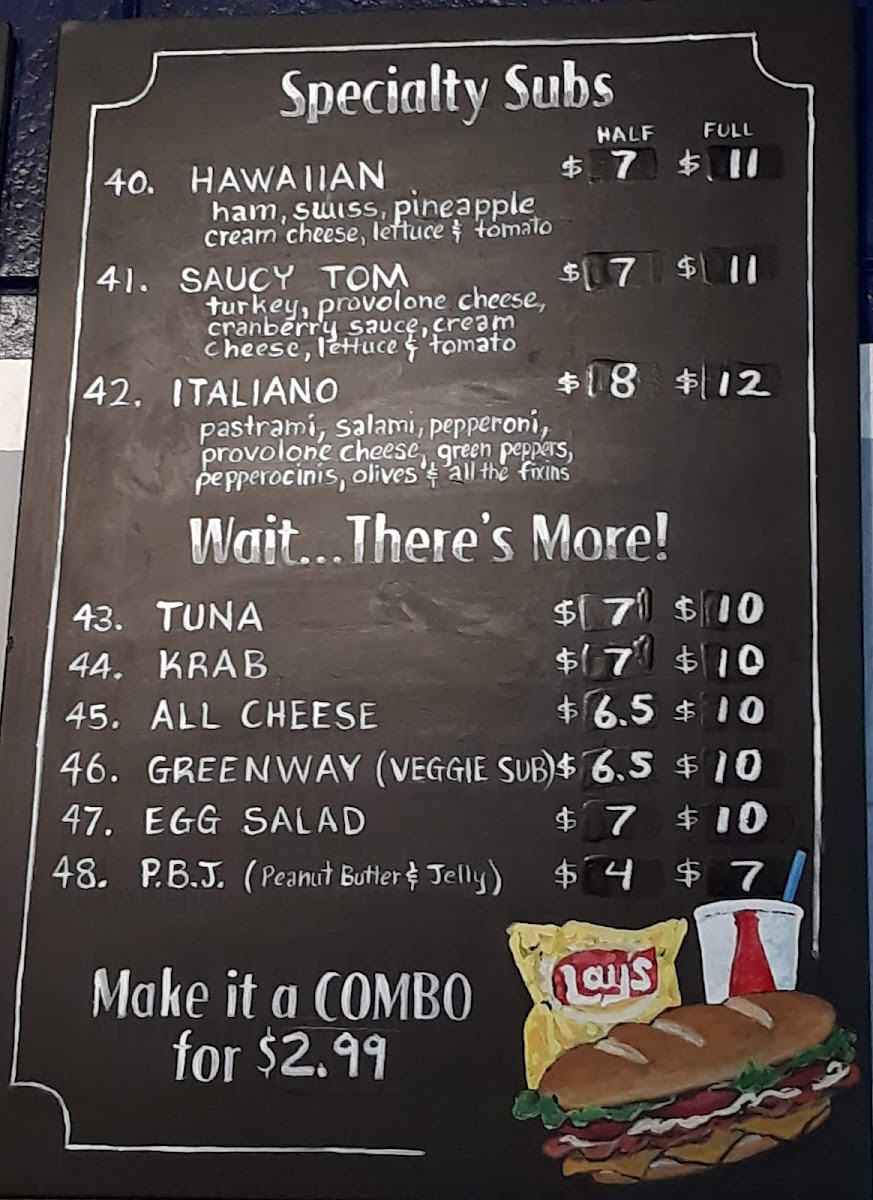 Specialty Subs
HALF FULL
40. HAWAIIAN $ 7 $ 11
ham, swiss, pineapple
cream cheese, lettuce & tomato
41. SAUCY TOM $ 7 $ 11
turkey, provolone cheese,
cranberry sauce, cream
cheese, lettuce & tomato
42. ITALIANO $ 8 $ 12
pastrami, salami, pepperoni,
provolone cheese, green peppers,
pepperocinis, olives & all the fixins
Wait...There's More!
43. TUNA $ 7 $ 10
44. KRAB $ 7 $ 10
45. ALL CHEESE $ 6.5 $ 10
46. GREENWAY (VEGGIE SUB) $ 6.5 $ 10
47. EGG SALAD $ 7 $ 10
48. P.B.J. (Peanut Butter & Jelly) $ 4 $ 7
Make it a COMBO
for $2.99
Lay's